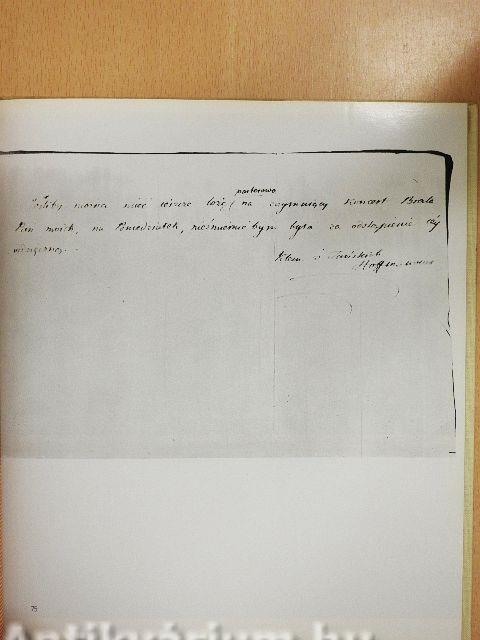 parterową
Jeśliby można mieć jeszcze lożę na czytniejszy Koncert Brata
Pan moich, na Poniedziałek, nieźmiernie bym była za odstąpienie téy
wdzięczną.
Klem. z Tańskich
Hoffmanowa
75
Antikvárium.hu